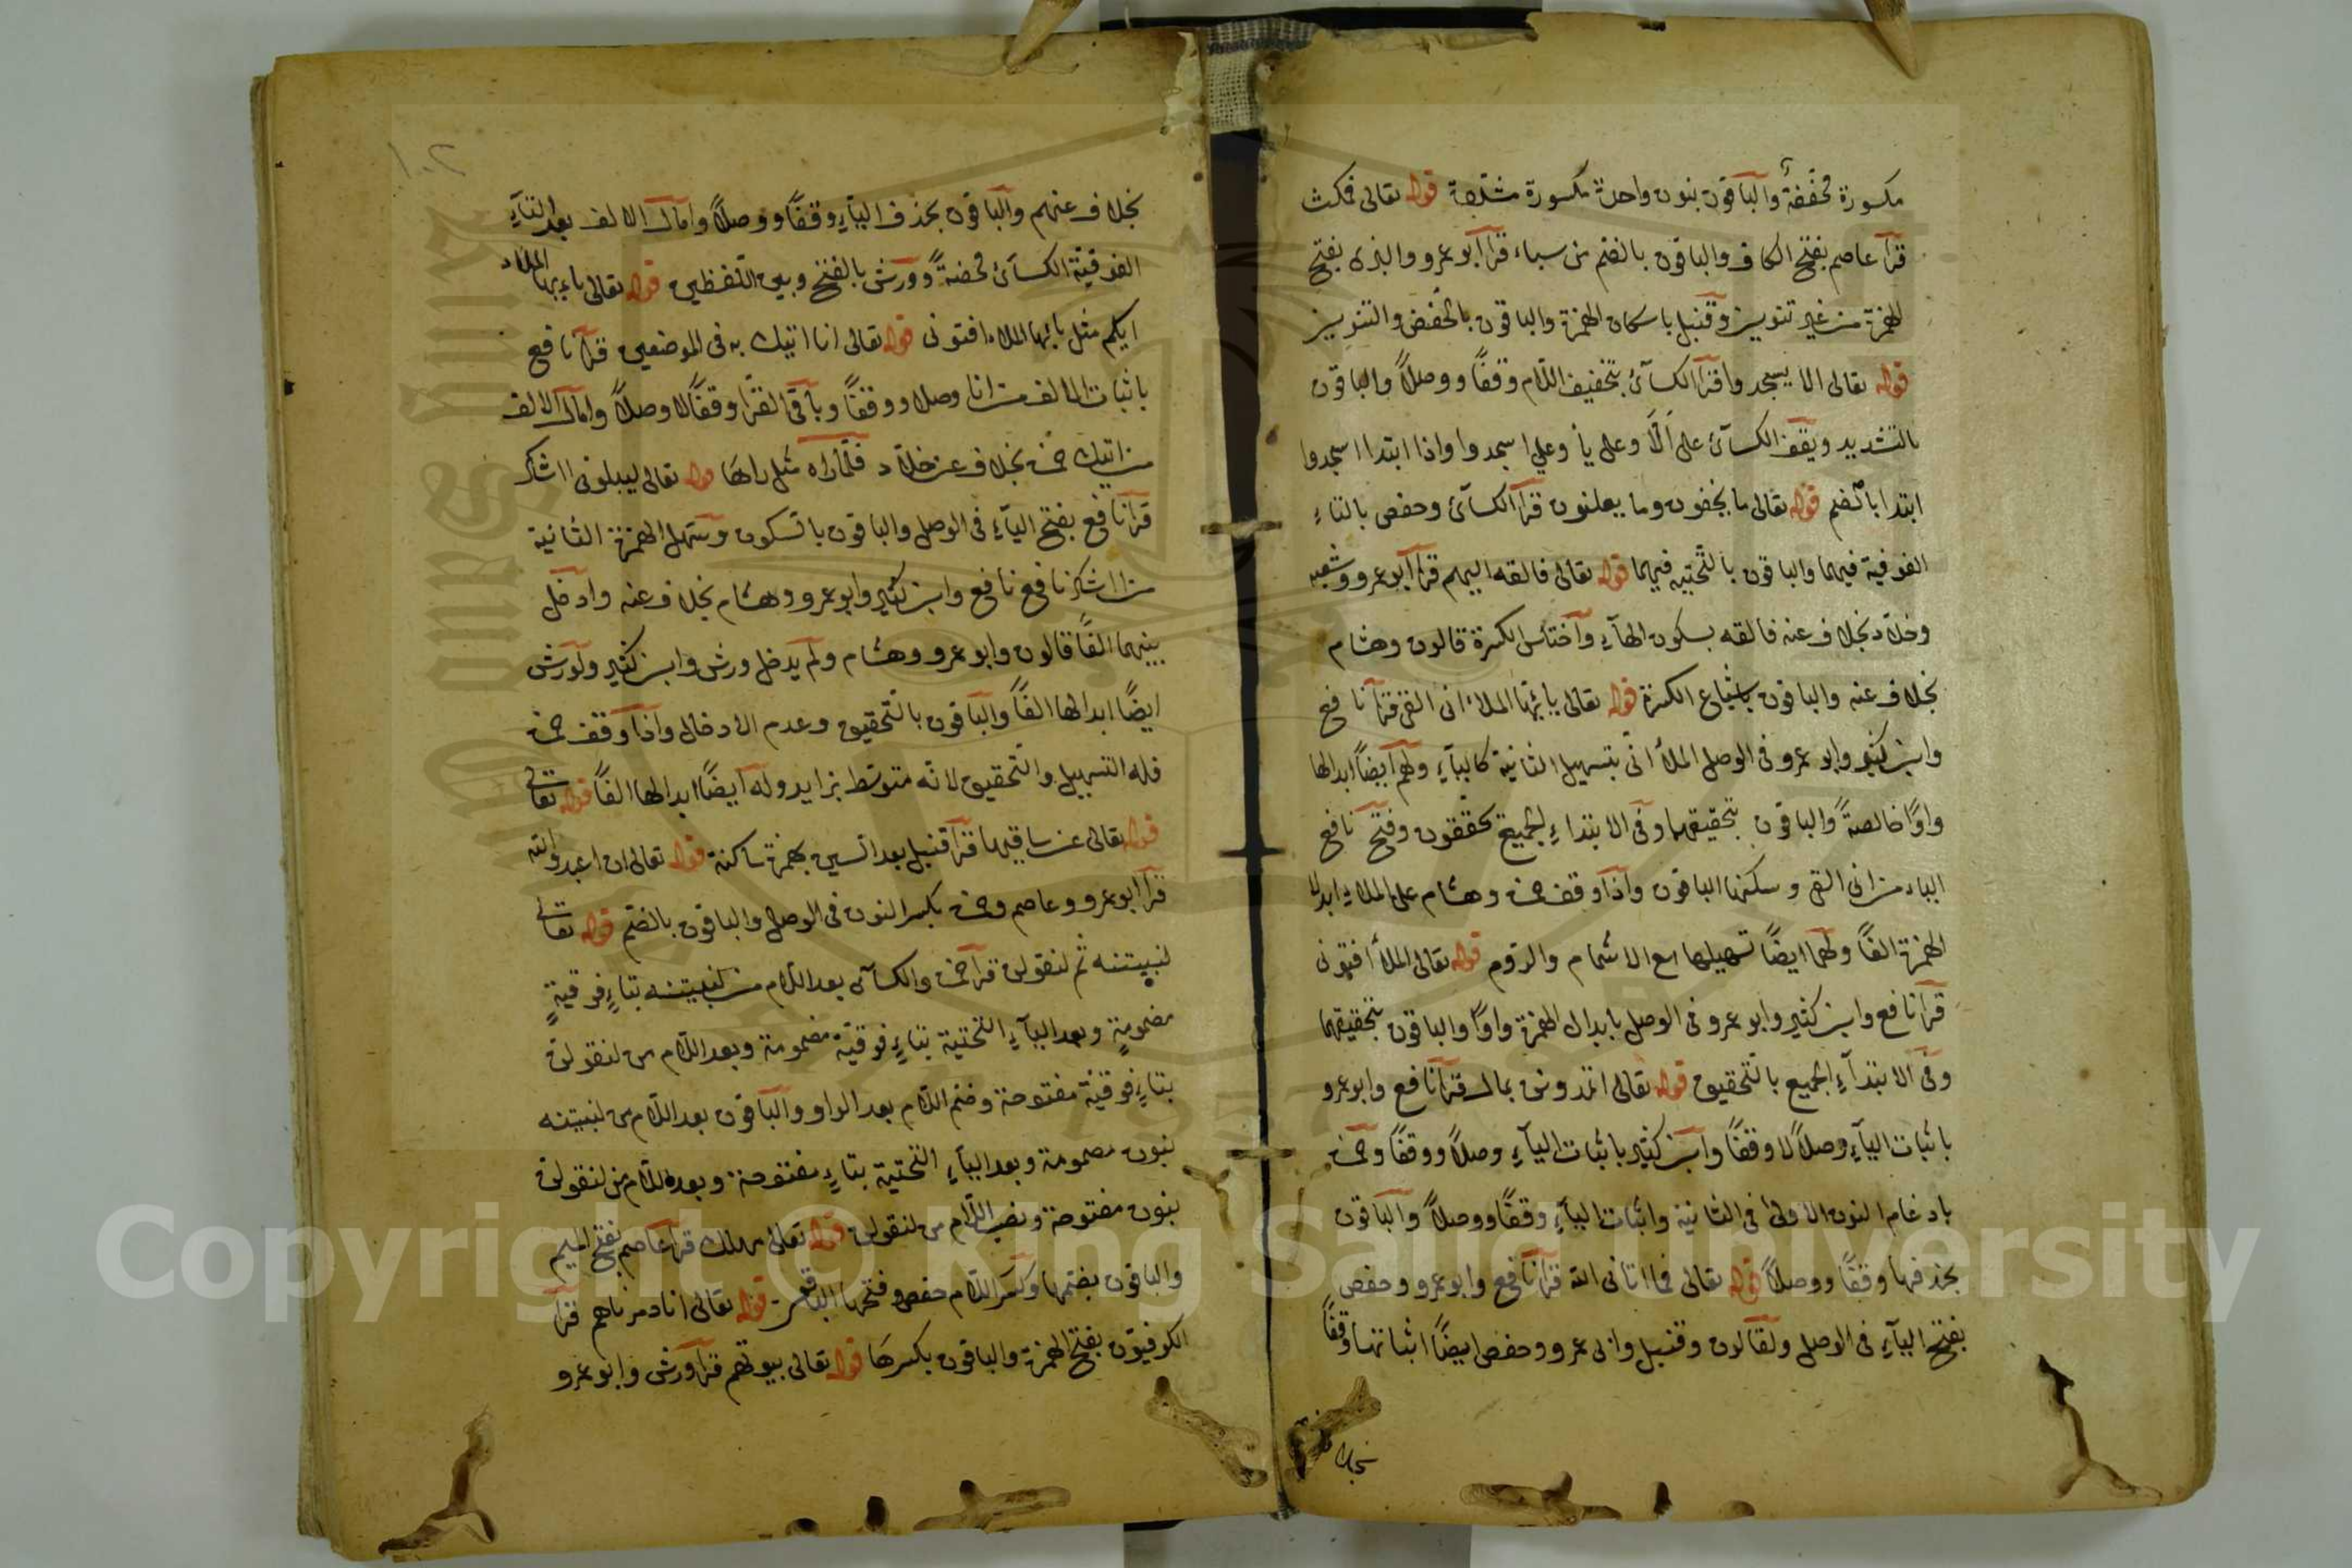 مكسورة مخففة والباقون بنون واحدة مكسورة مشددة قوله تعالى فمكث
قرأ عاصم بفتح الكاف والباقون بالضم من سباء قرأ أبو عمرو والبزى بفتح
الهمزة من غير تنوين وقنبل باسكان الهمزة والباقون بالخفض والتنوين
قوله تعالى الا يسجدوا قرأ الكسآئ بتخفيف اللام وقفًا ووصلاً والباقون
بالتشديد ويقف الكسآئ على ألا وعلى يا وعلى اسجدوا واذا ابتدا اسجدوا
ابتدا بالضم قوله تعالى ما يخفون وما يعلنون قرأ الكسآئ وحفص بالتاء
الفوقية فيهما والباقون بالتحتيه فيهما قوله تعالى فالقه اليهم قرأ أبو عمرو وشعبه
وخلاد بخلاف عنه فالقه بسكون الهآء واختلس الكسرة قالون وهشام
بخلاف عنه والباقون باشباع الكسرة قوله تعالى يا ايها الملاء انى القى قرأ نافع
وابن كثير وابو عمرو فى الوصل الملأ انى بتسهيل الثانية كاليآء ولهم أيضًا ابدالها
واوًا خالصةً والباقون بتحقيقهما وفى الابتداء الجميع يحققون وفتح نافع
الياء من انى القى وسكنها الباقون واذا وقف حمزة وهشام على الملاء ابدلا
الهمزة الفًا ولهما ايضًا تسهيلها مع الاشمام والروم قوله تعالى الملأ افتونى
قرأ نافع وابن كثير وابو عمرو فى الوصل بابدال الهمزة واوًا والباقون بتحقيقهما
وفى الابتدآء الجميع بالتحقيق قوله تعالى اتمدونن بمال قرأ نافع وابو عمرو
باثبات اليآء وصلاً لا وقفًا وابن كثير باثبات اليآء وصلاً ووقفًا وحمزة
بادغام النون الاولى فى الثانية واثبات اليآء وقفًا ووصلاً والباقون
بحذفها وقفًا ووصلاً قوله تعالى فما اتانى الله قرأ نافع وابو عمرو وحفص
بفتح اليآء فى الوصل ولقالون وقنبل وابى عمرو وحفص ايضًا اثباتها وقفًا
بخلاف
١٠٢
بخلاف عنهم والباقون بحذف اليآء وقفًا ووصلاً وامال الالف بعد التآء
الفوقية الكسآئ محضةً وورش بالفتح وبين اللفظين قوله تعالى يا ايها الملاء
ايكم مثل يا ايها الملاء افتونى قوله تعالى انا اتيك به فى الموضعين قرأ نافع
باثبات الالف من انا وصلا ووقفًا وباقى القرا وقفًا لا وصلاً وامال الالف
من اتيك حمزة بخلاف عن خلاد فلما راه مثل راها قوله تعالى ليبلونى ااشكر
قرأ نافع بفتح اليآء فى الوصل والباقون بالسكون وسهل الهمزة الثانية
من ااشكر نافع نافع وابن كثير وابو عمرو وهشام بخلاف عنه وادخل
بينهما الفًا قالون وابو عمرو وهشام ولم يدخل ورش وابن كثير ولورش
ايضًا ابدالها الفًا والباقون بالتحقيق وعدم الادخال واذا وقف حمزة
فله التسهيل والتحقيق لانه متوسط بزايد وله ايضًا ابدالها الفًا قوله تعالى
قوله تعالى عن ساقيها قرأ قنبل بعد السين بهمزة ساكنة قوله تعالى ان اعبدوا الله
قرأ ابو عمرو وعاصم وحمزة بكسر النون فى الوصل والباقون بالضم قوله تعالى
لنبيتنه ثم لنقولن قرأ حمزة والكسآى بعد اللام من لنبيتنه بتاء فوقيةٍ
مضمومةٍ وبعد اليآء التحتية بتاءٍ فوقيّة مضمومة وبعد اللام من لنقولن
بتاءٍ فوقيّة مفتوحة وضم اللام بعد الواو والباقون بعد اللام من لنبيتنه
بنون مضمومة وبعد اليآء التحتية بتاءٍ مفتوحة وبعد اللام من لنقولن
بنون مفتوحة ونصب اللام من لنقولن قوله تعالى مهلك قرأ عاصم بفتح الميم
والباقون بضمها وكسر اللام حفص وفتحها الباقون قوله تعالى انا دمرناهم قرأ
الكوفيون بفتح الهمزة والباقون بكسرها قوله تعالى بيوتهم قرأ ورش وابو عمرو
Copyright © King Saud University